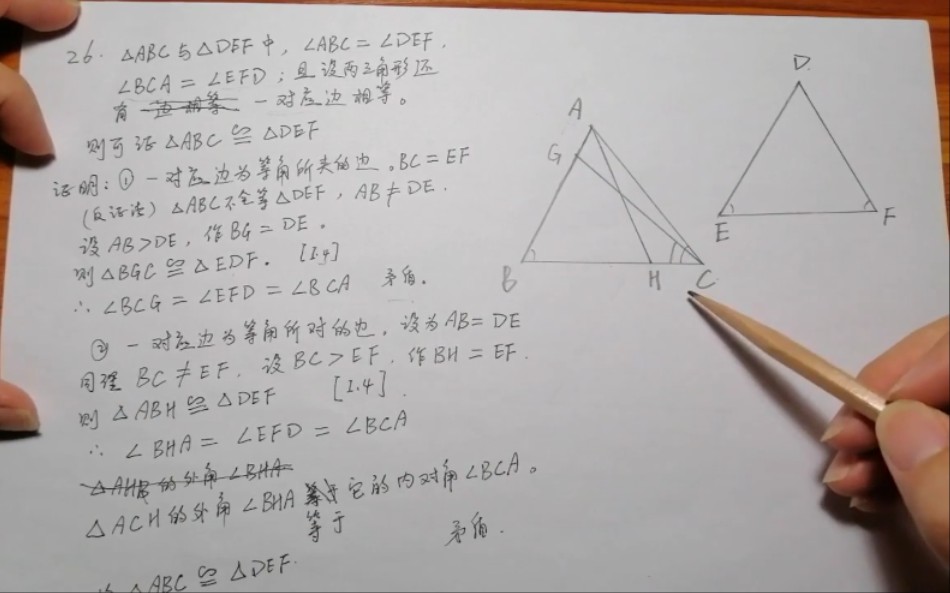 26. △ABC与△DEF中，∠ABC=∠DEF，
∠BCA=∠EFD；且设两三角形还
有 一对应边相等。
则可证△ABC≌△DEF
证明：① 一对应边为等角所夹的边。BC=EF
(反证法) △ABC不全等△DEF，AB≠DE.
设AB>DE，作BG=DE.
则△BGC≌△EDF. [I.4]
∴∠BCG=∠EFD=∠BCA 矛盾。
② 一对应边为等角所对的边，设为AB=DE
同理 BC≠EF，设BC>EF，作BH=EF.
则△ABH≌△DEF [I.4].
∴∠BHA=∠EFD=∠BCA
△AHB的外角∠BHA
△ACH的外角∠BHA 它的内对角∠BCA。
等于
矛盾.
△ABC≌△DEF.
A
G
B
H
C
D
E
F